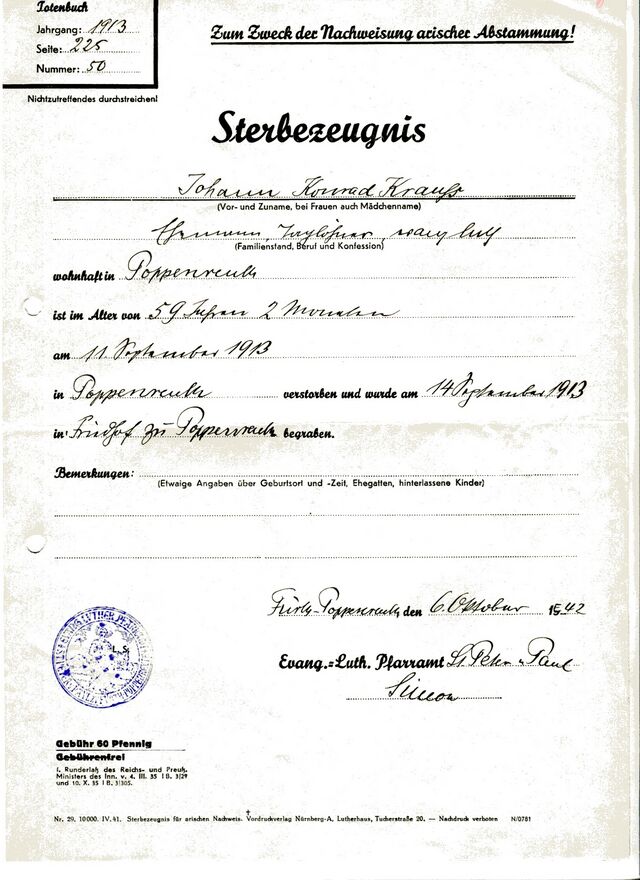 Totenbuch
Jahrgang: 1913
Seite: 225
Nummer: 50
Nichtzutreffendes durchstreichen!
Zum Zweck der Nachweisung arischer Abstammung!
Sterbezeugnis
Johann Konrad Krauß
(Vor- und Zuname, bei Frauen auch Mädchenname)
Ehemann, Taglöhner, evang. luth
(Familienstand, Beruf und Konfession)
wohnhaft in Poppenreuth
ist im Alter von 59 Jahren 2 Monaten
am 11 September 1913
in Poppenreuth verstorben und wurde am 14 September 1913
in Friedhof zu Poppenreuth begraben.
Bemerkungen:
(Etwaige Angaben über Geburtsort und -Zeit, Ehegatten, hinterlassene Kinder)
Fürth-Poppenreuth den 6. Oktober 1942
Evang.=Luth. Pfarramt St. Peter u. Paul
L. S.
Simon
Gebühr 60 Pfennig
Gebührenfrei
f. Runderlaß des Reichs- und Preuß.
Ministers des Inn. v. 4. III. 35 I B. 3/29
und 10. X. 35 I B. 3/305.
Nr. 29. 10000. IV. 41. Sterbezeugnis für arischen Nachweis. Vordruckverlag Nürnberg-A, Lutherhaus, Tucherstraße 20. — Nachdruck verboten N/0781